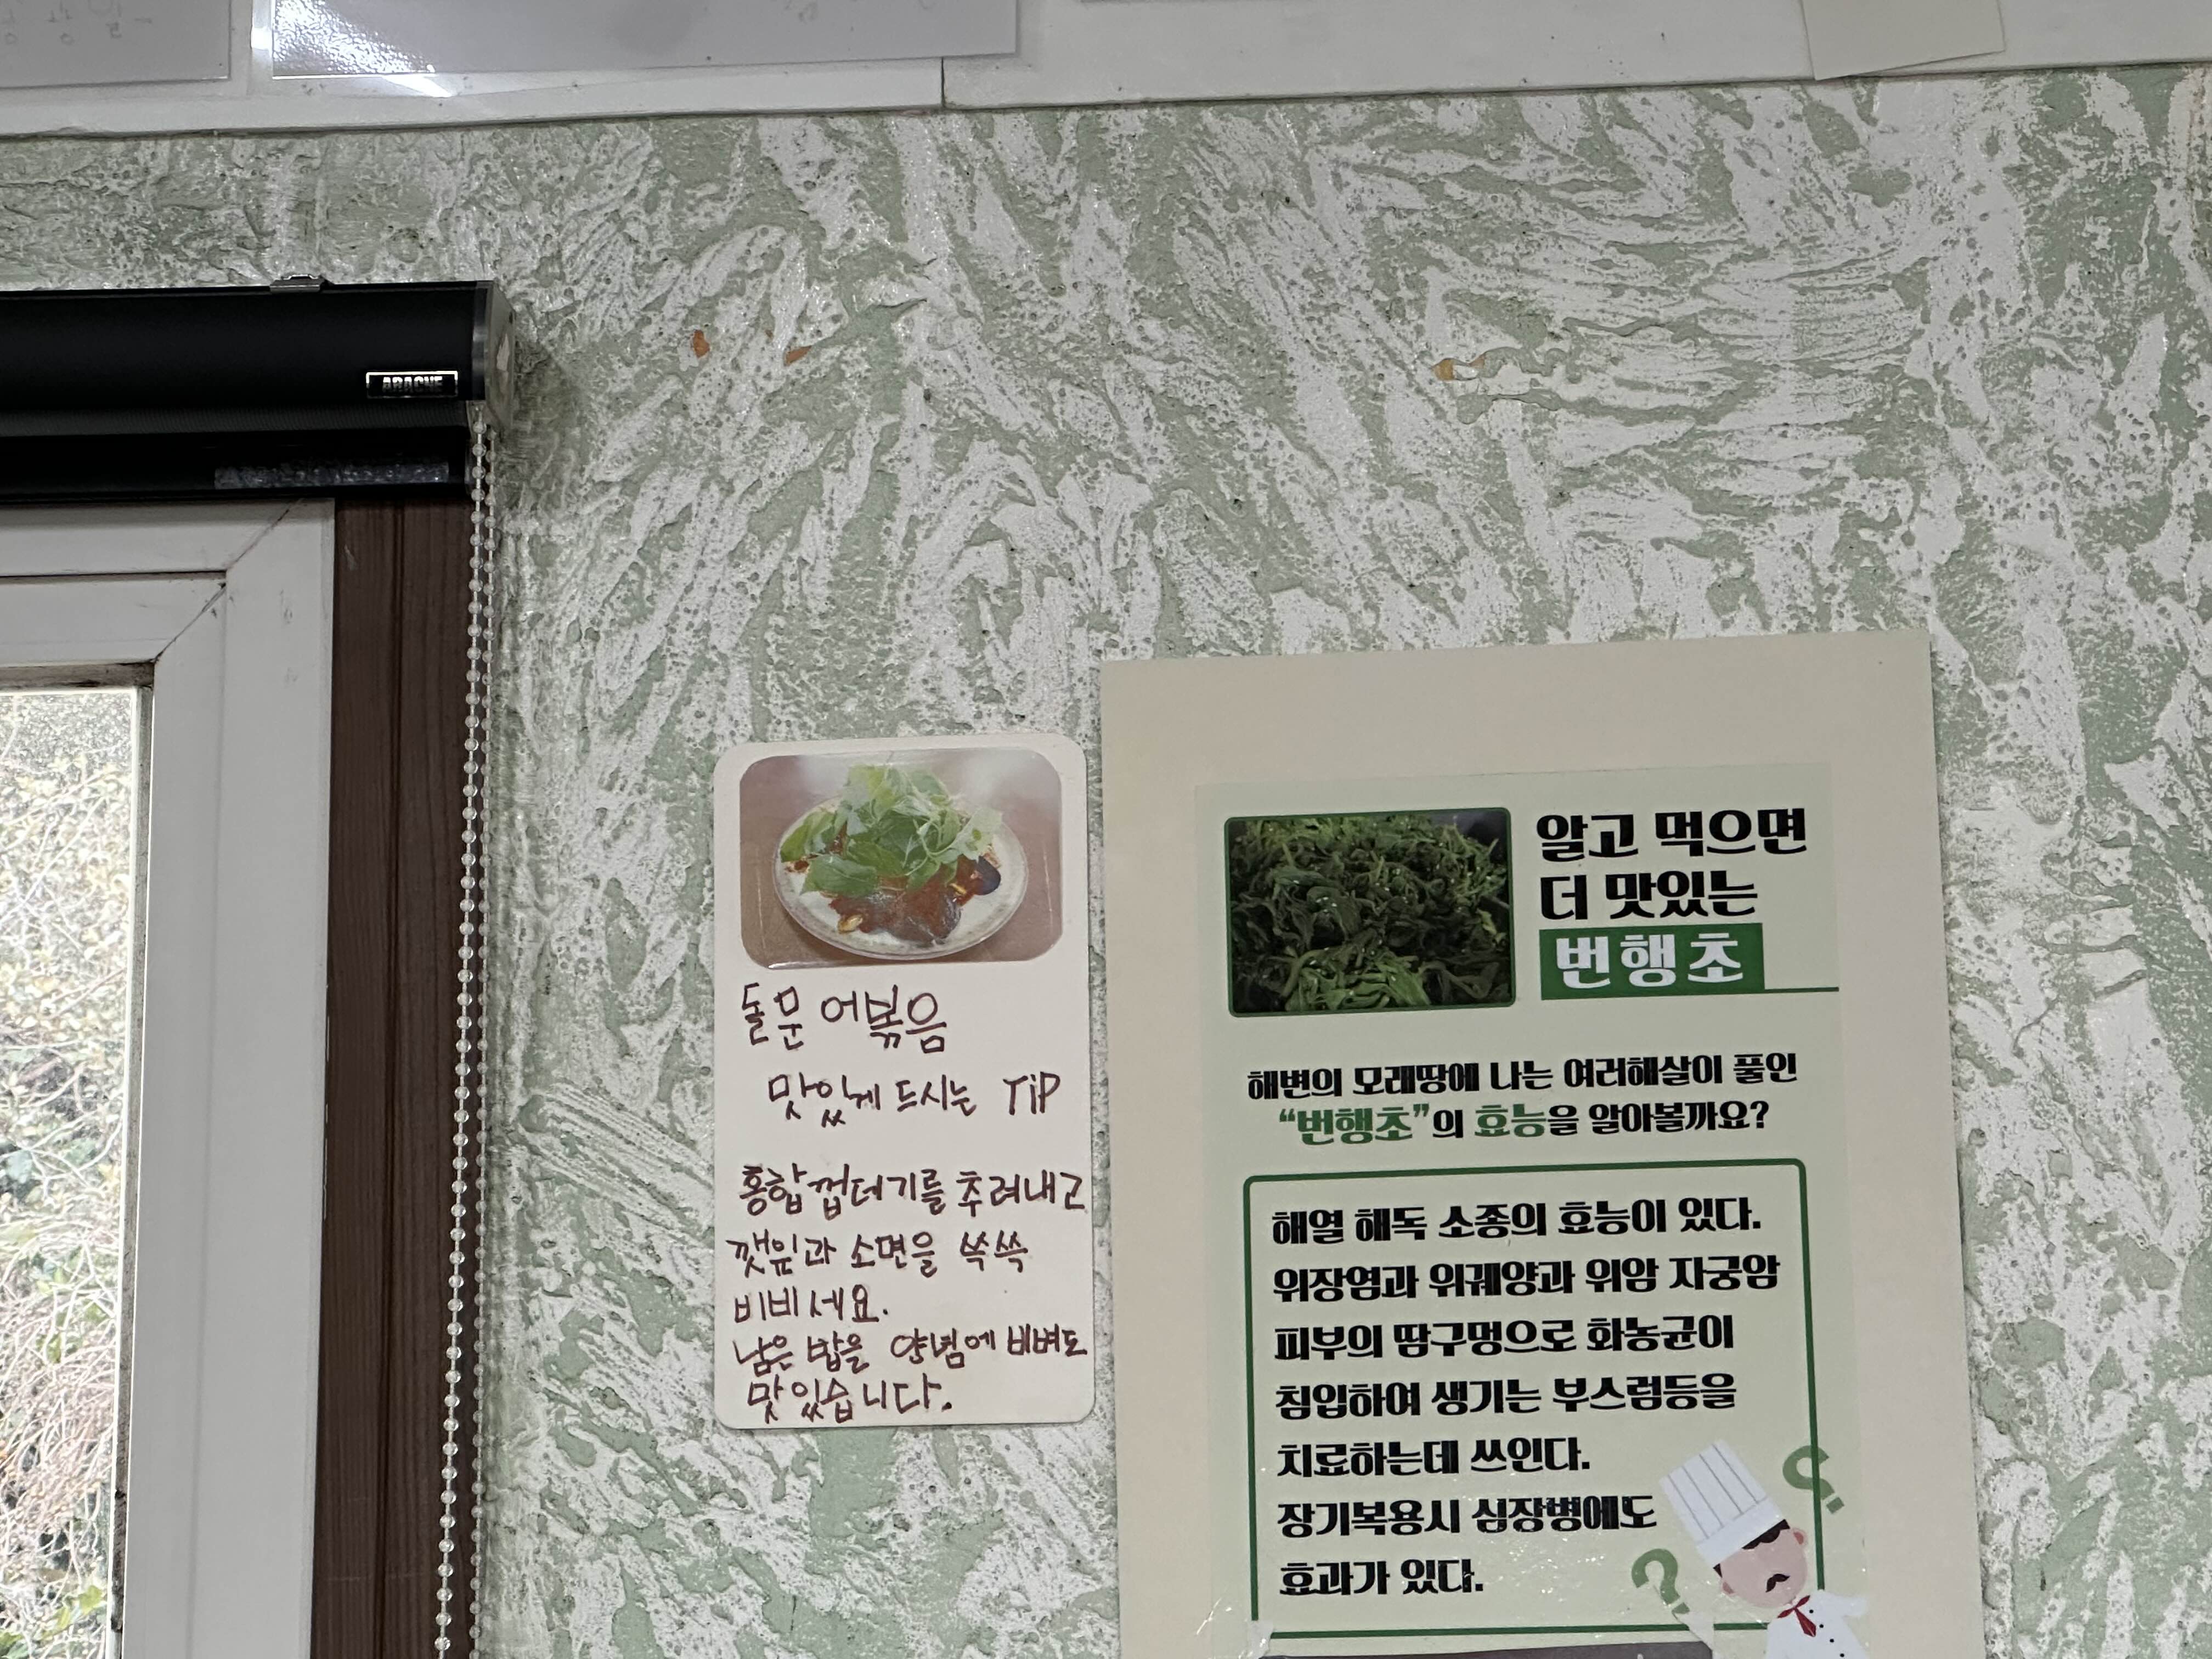 ABACHE
돌문어볶음
맛있게 드시는 TIP
홍합껍데기를 추려내고
깻잎과 소면을 쓱쓱
비비세요.
남은 밥을 양념에 비벼도
맛있습니다.
알고 먹으면
더 맛있는
번행초
해변의 모래땅에 나는 여러해살이 풀인
“번행초”의 효능을 알아볼까요?
해열 해독 소종의 효능이 있다.
위장염과 위궤양과 위암 자궁암
피부의 땀구멍으로 화농균이
침입하여 생기는 부스럼등을
치료하는데 쓰인다.
장기복용시 심장병에도
효과가 있다.